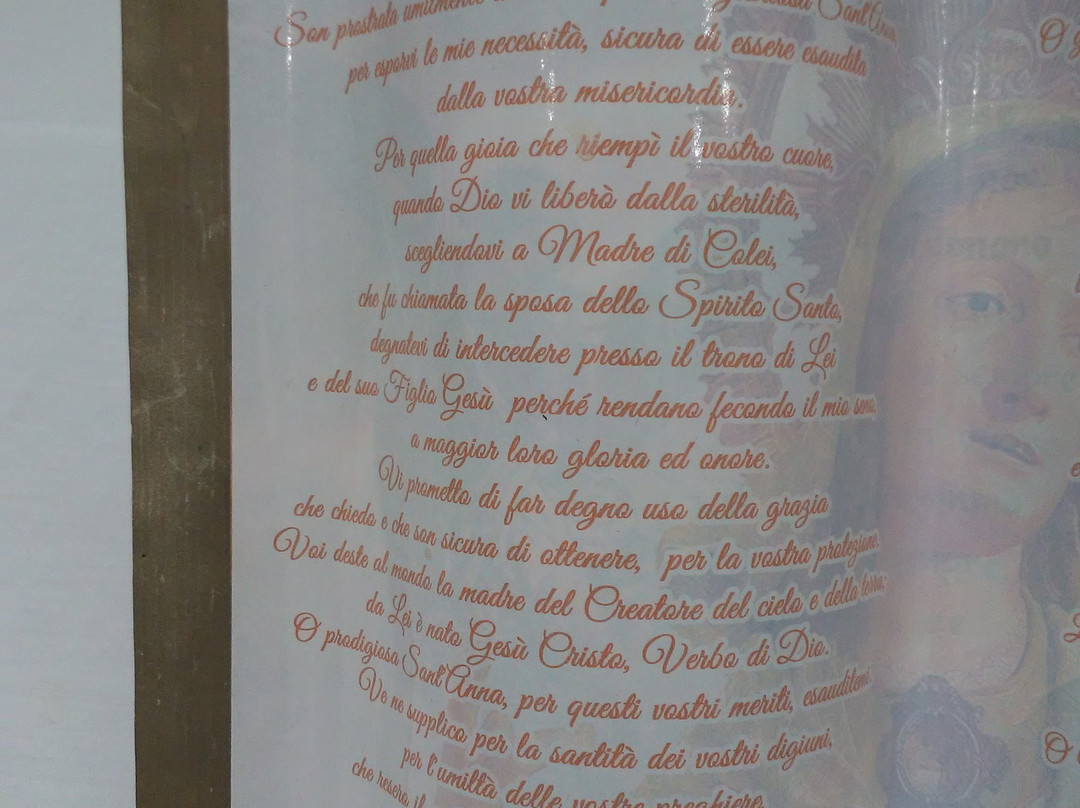 Son prostrata umilmente Sant'Anna,
per esporvi le mie necessità, sicura di essere esaudita
dalla vostra misericordia.
Per quella gioia che riempì il vostro cuore,
quando Dio vi liberò dalla sterilità,
scegliendovi a Madre di Colei,
che fu chiamata la sposa dello Spirito Santo,
degnatevi di intercedere presso il trono di Lei
e del suo Figlio Gesù perché rendano fecondo il mio seno,
a maggior loro gloria ed onore.
Vi prometto di far degno uso della grazia
che chiedo e che son sicura di ottenere, per la vostra protezione.
Voi deste al mondo la madre del Creatore del cielo e della terra;
da Lei è nato Gesù Cristo, Verbo di Dio.
O prodigiosa Sant'Anna, per questi vostri meriti, esauditemi.
Ve ne supplico per la santità dei vostri digiuni,
per l'umiltà delle vostre preghiere,
che resero il
O
O